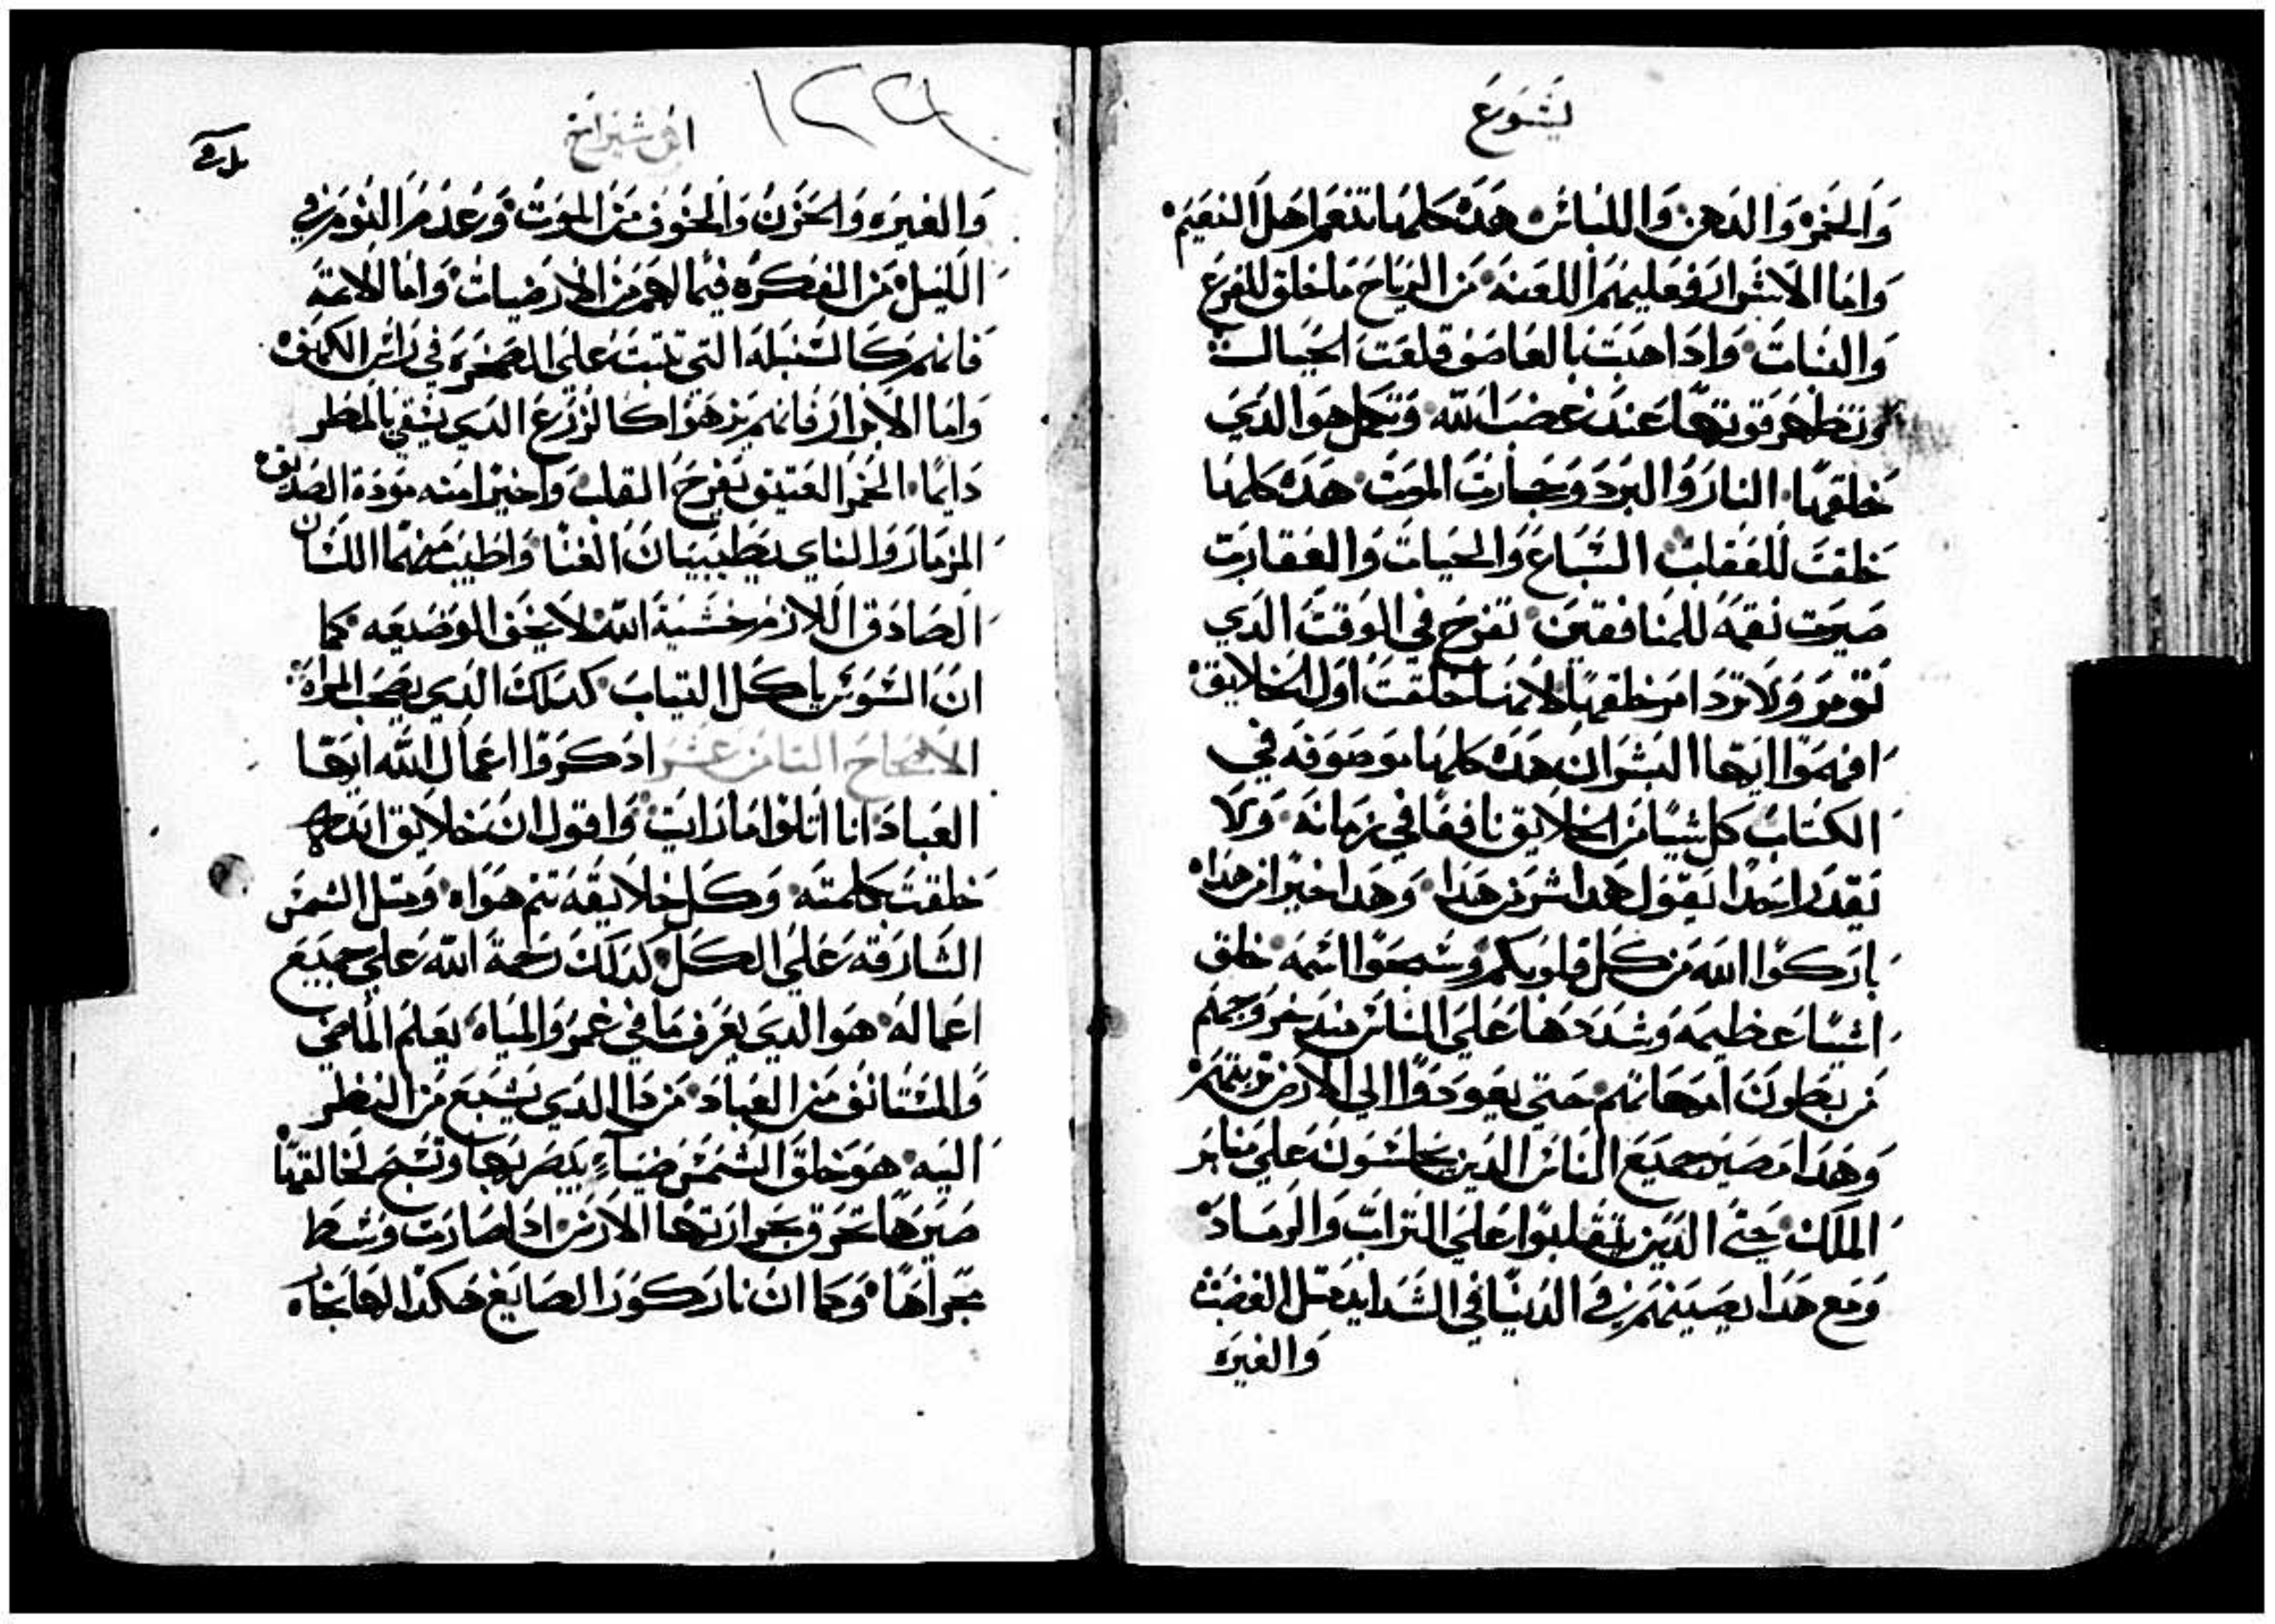 يشوع
والخمر والدهن واللباس هده كلها تنعم اهل النعيم
واما الاشرار فعليهم اللعنه من الرياح ما خلق للفزع
والفنات وادا هبت بالعاصف قلعت الجبال
وتظهر قوتها عند غضب الله وتكمل هوا الدي
خلقها النار والبرد وحجارت الموت هده كلها
خلقت للعقاب السباع والحيات والعقارب
صيرت نقمه للمنافقين تفرح في الوقت الدي
تومر ولا ترد امر خالقها لانها خلقت اول الخلايق
افهموا ايها البشر ان هده كلها موصوفه في
الكتاب كل شيا من الخلايق نافقا في زمانه ولا
يقدر احدا يقول هدا شر من هدا وهدا خيرا من هدا
باركوا الله من كل قلوبكم وسبحوا اسمه خلق
اشيا عظيمه وشددها علي الناس مند خروجهم
من بطون امهاتهم حتي يعودوا الي الارض
وهدا مصير جميع الناس الدين يجلسون علي منابر
الملك حتي الدين يتقلبوا علي التراب والرماد
ومع هدا يصيبهم في الدنيا في الشدايد متل الغضب
والغيره
١٢٩
ابن شيراخ
والغيره والحزن والخوف من الموت وعدم النوم في
الليل من الفكره فيما لهم من الارضيات واما الاتمه
فانهم كالسنبله التي تنبت علي الصخره في راس الكهف
واما الابرار فانهم يزهوا كالزرع الدي يسقي بالمطر
دايما الخمر العتيق يفرح القلب واخيرا منه مودة الصديق
المزمار والناي يطيبان الغنا واطيب منهما اللسان
الصادق اللازم خشية الله لا يخف الوضيعه كما
ان السوس ياكل التياب كدلك الدي يصحب المراه
الاصحاح التامن عشر ادكروا اعمال الله ايها
العباد انا اتلوا ما رايت واقول ان خلايق الله
خلقت بكلمته وكل خلايقه تتم هواه ومتل الشمس
الشارقه علي الكل كدلك رحمة الله علي جميع
اعماله هو الدي يعرف ما في غمر والمياه يعلم الماضي
والمستانف من العباد من دا الدي يشبع من النظر
اليه هو خلق الشمس ضياء يبصر بها وتسبح لخالقها
صيرها تحرق بحرارتها الارض ادا صارت وسط
مجراها وكما ان نار كور الصايغ هكدا لها